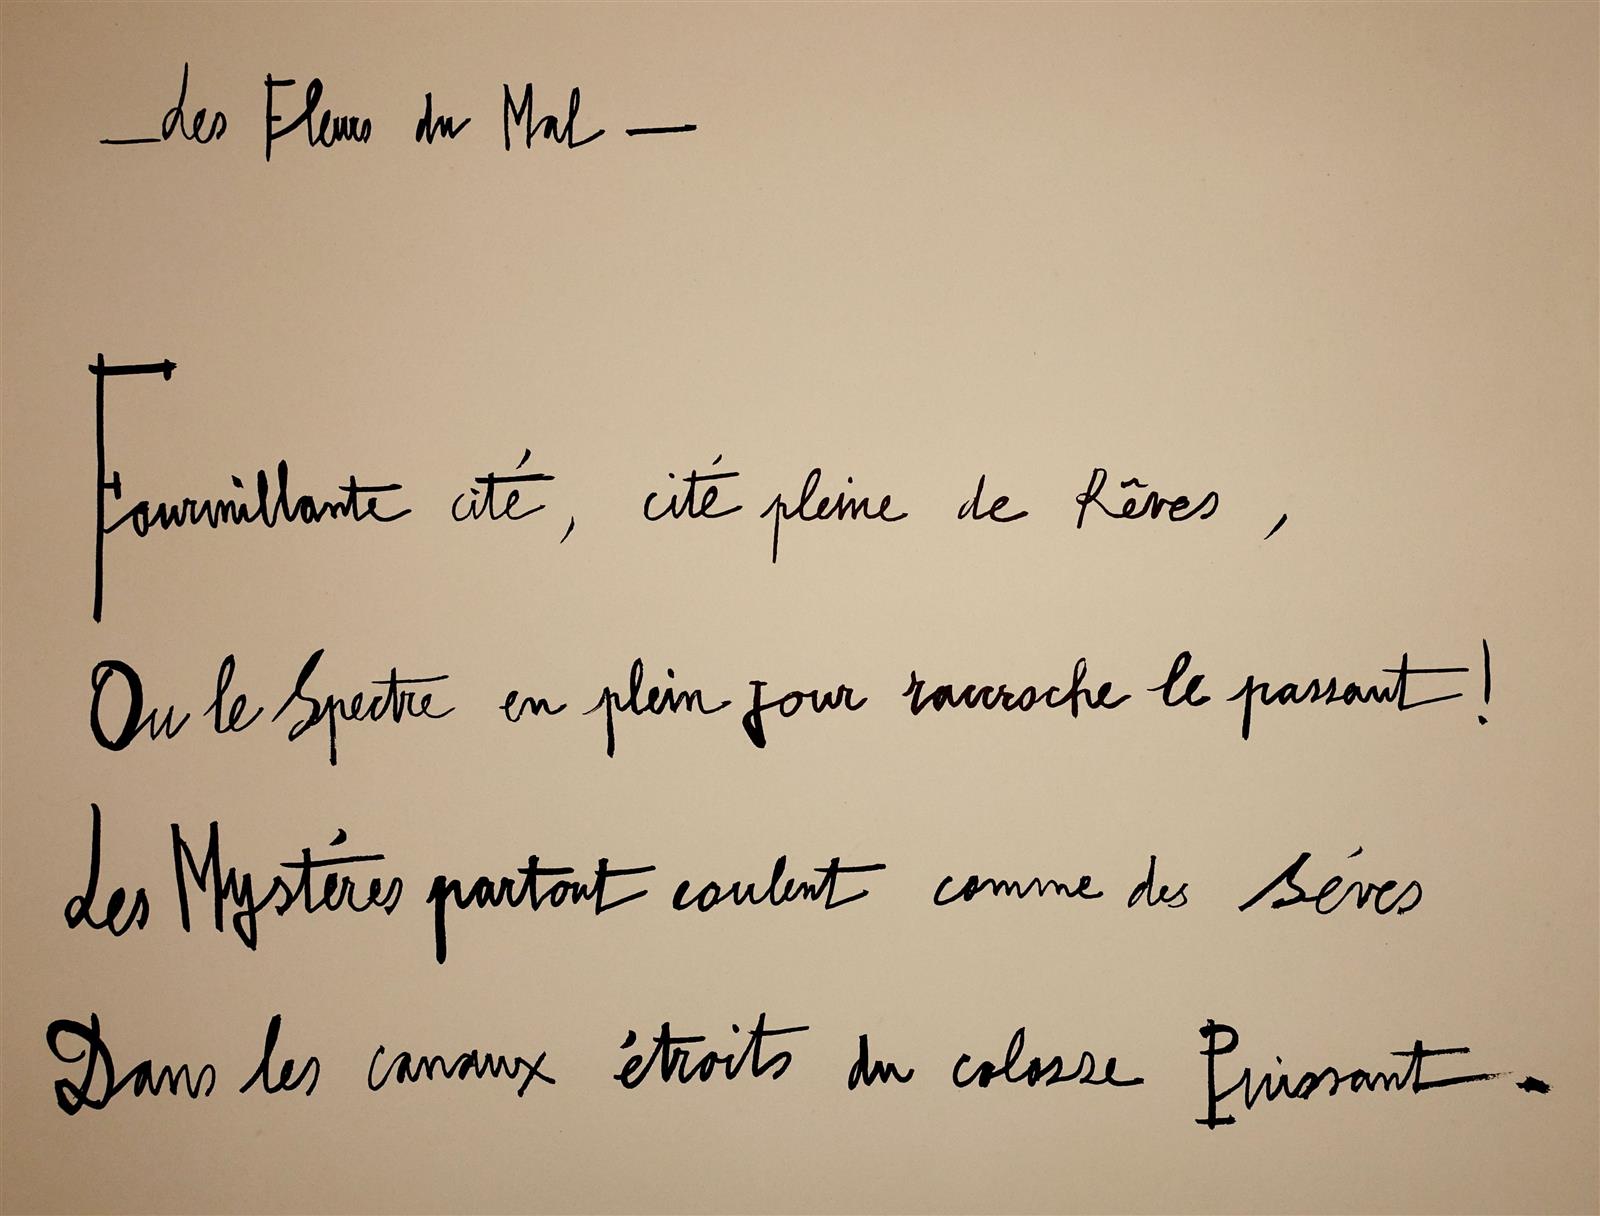 _Les Fleurs du Mal_
Fourmillante cité, cité pleine de Rêves,
Ou le Spectre en plein jour raccroche le passant!
Les Mystéres partout coulent comme des Séves
Dans les canaux étroits du colosse Puissant.